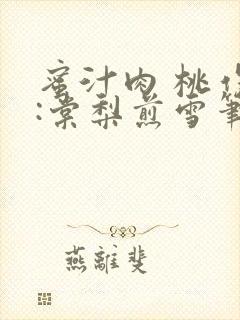 蜜汁肉桃作
:棠梨煎雪笔
燕離斐